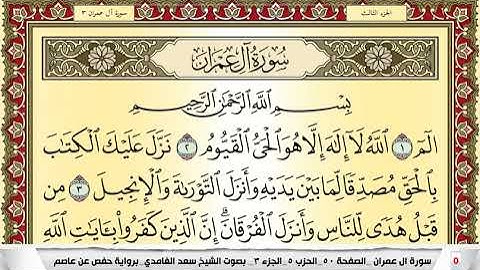 الجزء الثالث
سورة آل عمران ٣
سُورَةُ آلِ عِمْرَانَ
بِسْمِ اللَّهِ الرَّحْمَٰنِ الرَّحِيمِ
الٓمٓ ١ اللَّهُ لَا إِلَٰهَ إِلَّا هُوَ الْحَيُّ الْقَيُّومُ ٢ نَزَّلَ عَلَيْكَ الْكِتَٰبَ
بِالْحَقِّ مُصَدِّقًا لِّمَا بَيْنَ يَدَيْهِ وَأَنزَلَ التَّوْرَىٰةَ وَالْإِنجِيلَ ٣ مِن
قَبْلُ هُدًى لِّلنَّاسِ وَأَنزَلَ الْفُرْقَانَ ۗ إِنَّ الَّذِينَ كَفَرُوا۟ بِـَٔايَٰتِ اللَّهِ
سورة ال عمران _الصفحة ٥٠ _الحزب ٥ _الجزء ٣ _ بصوت الشيخ سعد الغامدي _برواية حفص عن عاصم
٥